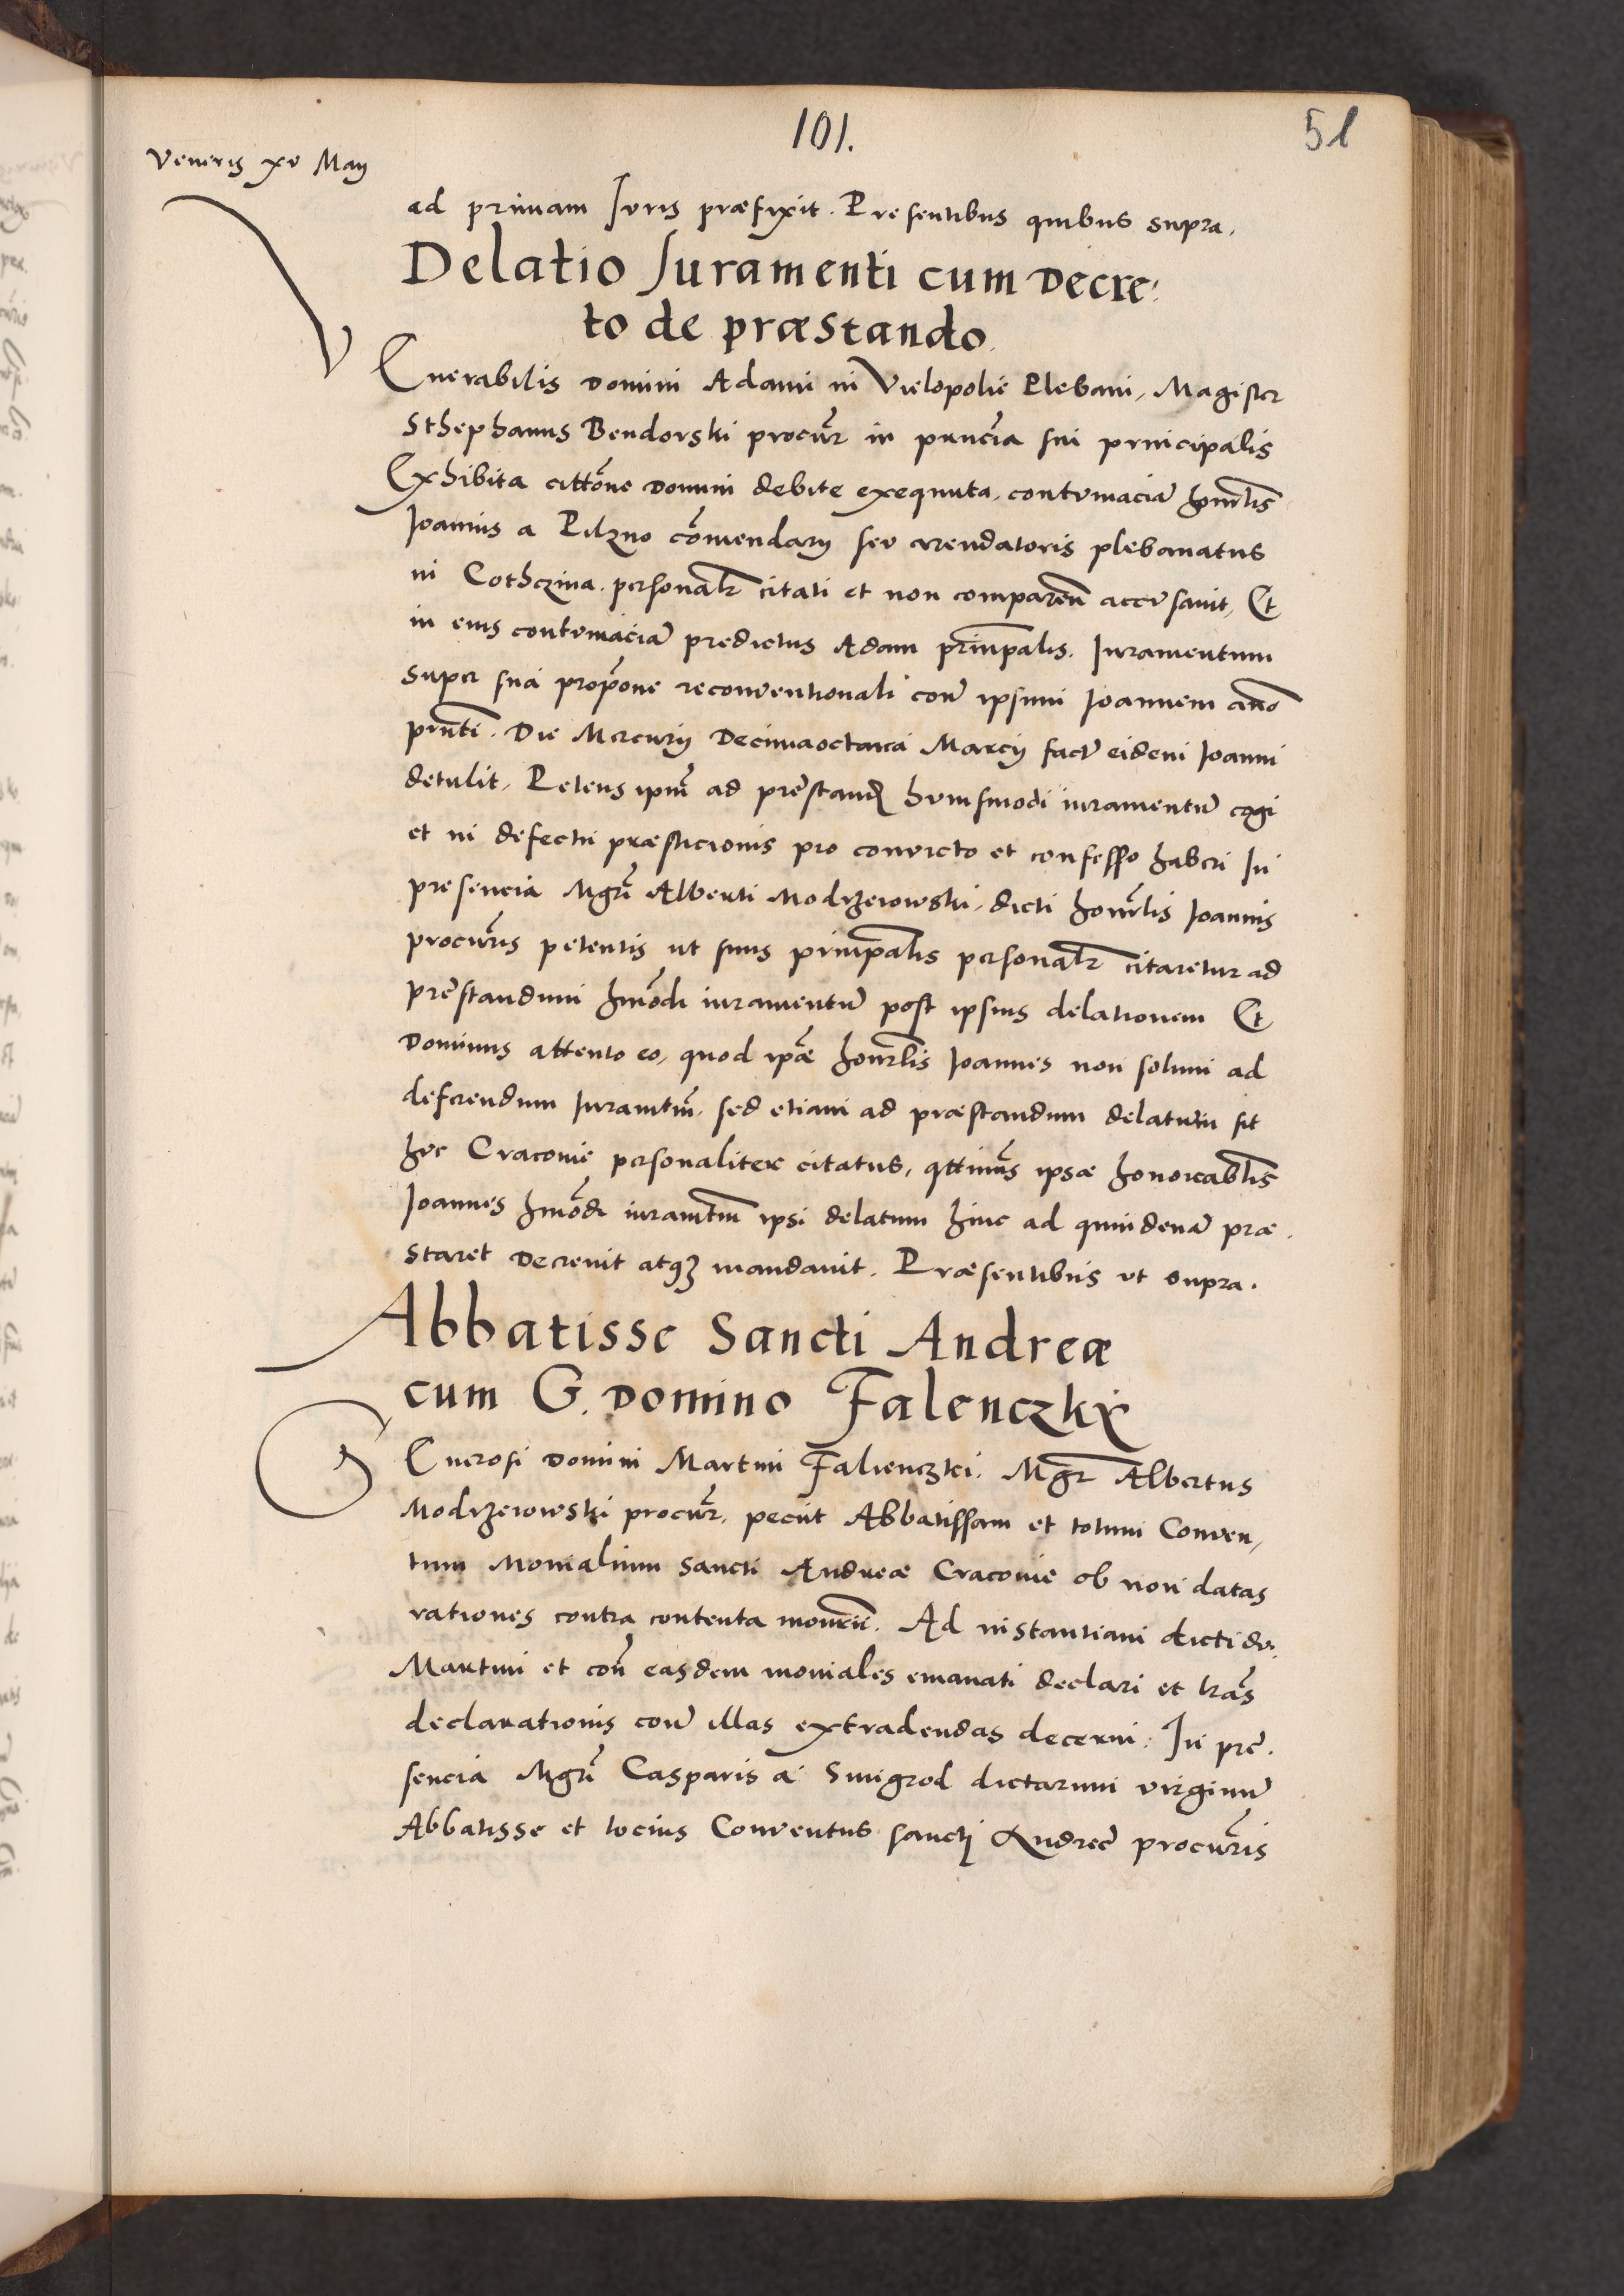 101.
51
Veneris xv Maij
ad primam Juris præfixit. Presentibus quibus supra.
Delatio Juramenti cum Decre:
to de præstando.
VEnerabilis Domini Adami in Vielopolie Plebani, Magister
Sthephanus Bendorski procur̃ in pñcia sui principalis
Exhibita cittõne Domini debite exequuta, contumaciã honrl̃is
Joannis a Pilzno cõmendarij seu arendatoris plebanatus
in Cothczina personalr̃ citati et non comparen̄ accusavit, Et
in eius contumaciã predictus Adam prin̄palis. Juramentum
super sua propõne reconventionali con̄ ipsum Joannem año
prñti. Die Mercurij Decimaoctava Marcij fact̃ eidem Joanni
detulit. Petens ipm̄ ad prestand̃ huiusmodi iuramentũ cogi
et in defectu præsticionis pro convicto et confesso haberi In
presencia Mgr̃i Alberti Modrzewowski, dicti honrl̃is Joannis
procur̃is petentis ut suus prin̄palis personalr̃ citaretur ad
prestandum hmõdi iuramentũ post ipsius delationem Et
Dominus attento eo, quod ipæ̃ honrl̃is Joannes non solum ad
deferendum Juramtm̃. sed etiam ad præstandum delatum sit
huc Cracovie personaliter citatus, qttinus̃ ipsæ honorabl̃is
Joannes hmõdi iuramtm̃ ipsi delatum hinc ad quindenã præ.
staret Decrevit atqʒ mandavit. Præsentibus ut supra.
Abbatisse Sancti Andreæ
cum G. Domino Falenczkÿ
GEnerosi Domini Martini Falienczki. Mgr̃ Albertus
Modrzewowski procur̃, peciit Abbatissam et totum Conven,
tum Monialium Sancti Andreæ Cracovie ob non datas
rationes contra contenta monrii̅. Ad instantiam dicti dñi
Martini et con̄ easdem moniales emanati declari et lrãs
declarationis con̄ illas extradendas decerni. In pre.
sencia Mgr̃i Casparis a Smigrod dictarum virginũ
Abbatisse et tocius Conventus sancti Andreę procur̃is